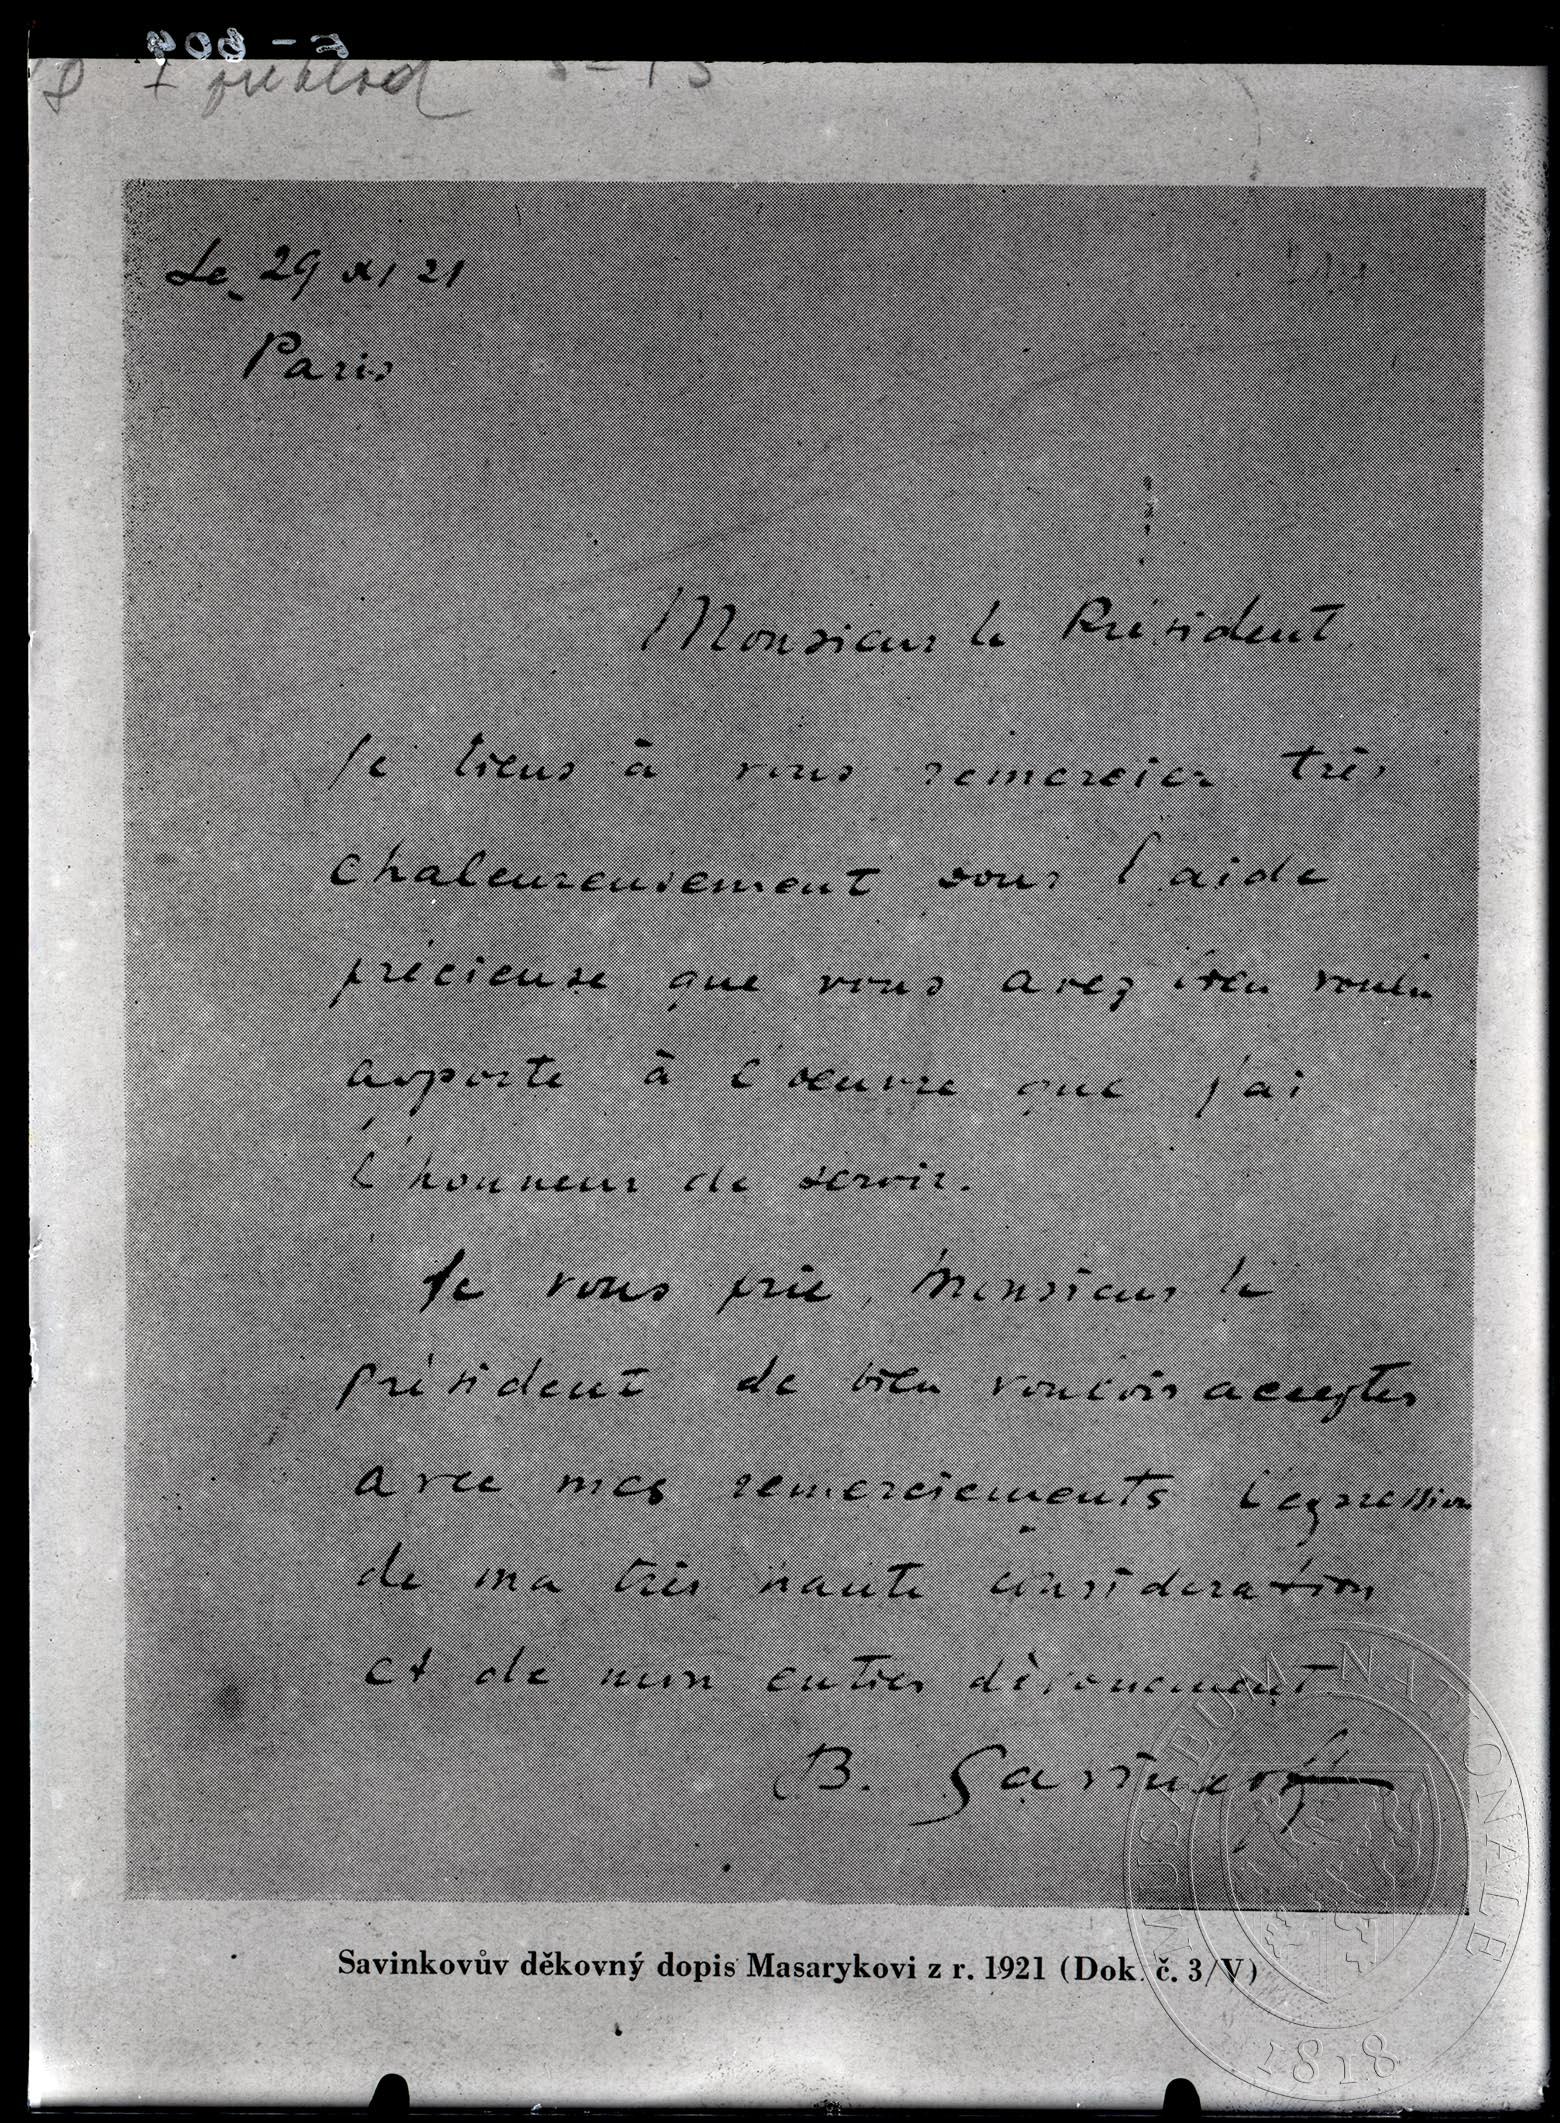 Le 29 XI 21
Paris
Monsieur le Président
Je tiens à vous remercier très
chaleureusement pour l'aide
précieuse que vous avez bien voulu
apporte à l'oeuvre que j'ai
l'honneur de servir.
Je vous prie, Monsieur le
président de bien vouloir accepter
avec mes remerciements l'expression
de ma très haute consideration
et de mon entier dévouement
B. Savinkoff
Savinkovův děkovný dopis Masarykovi z r. 1921 (Dok. č. 3/V)
MUSAEUM NATIONALE
1818